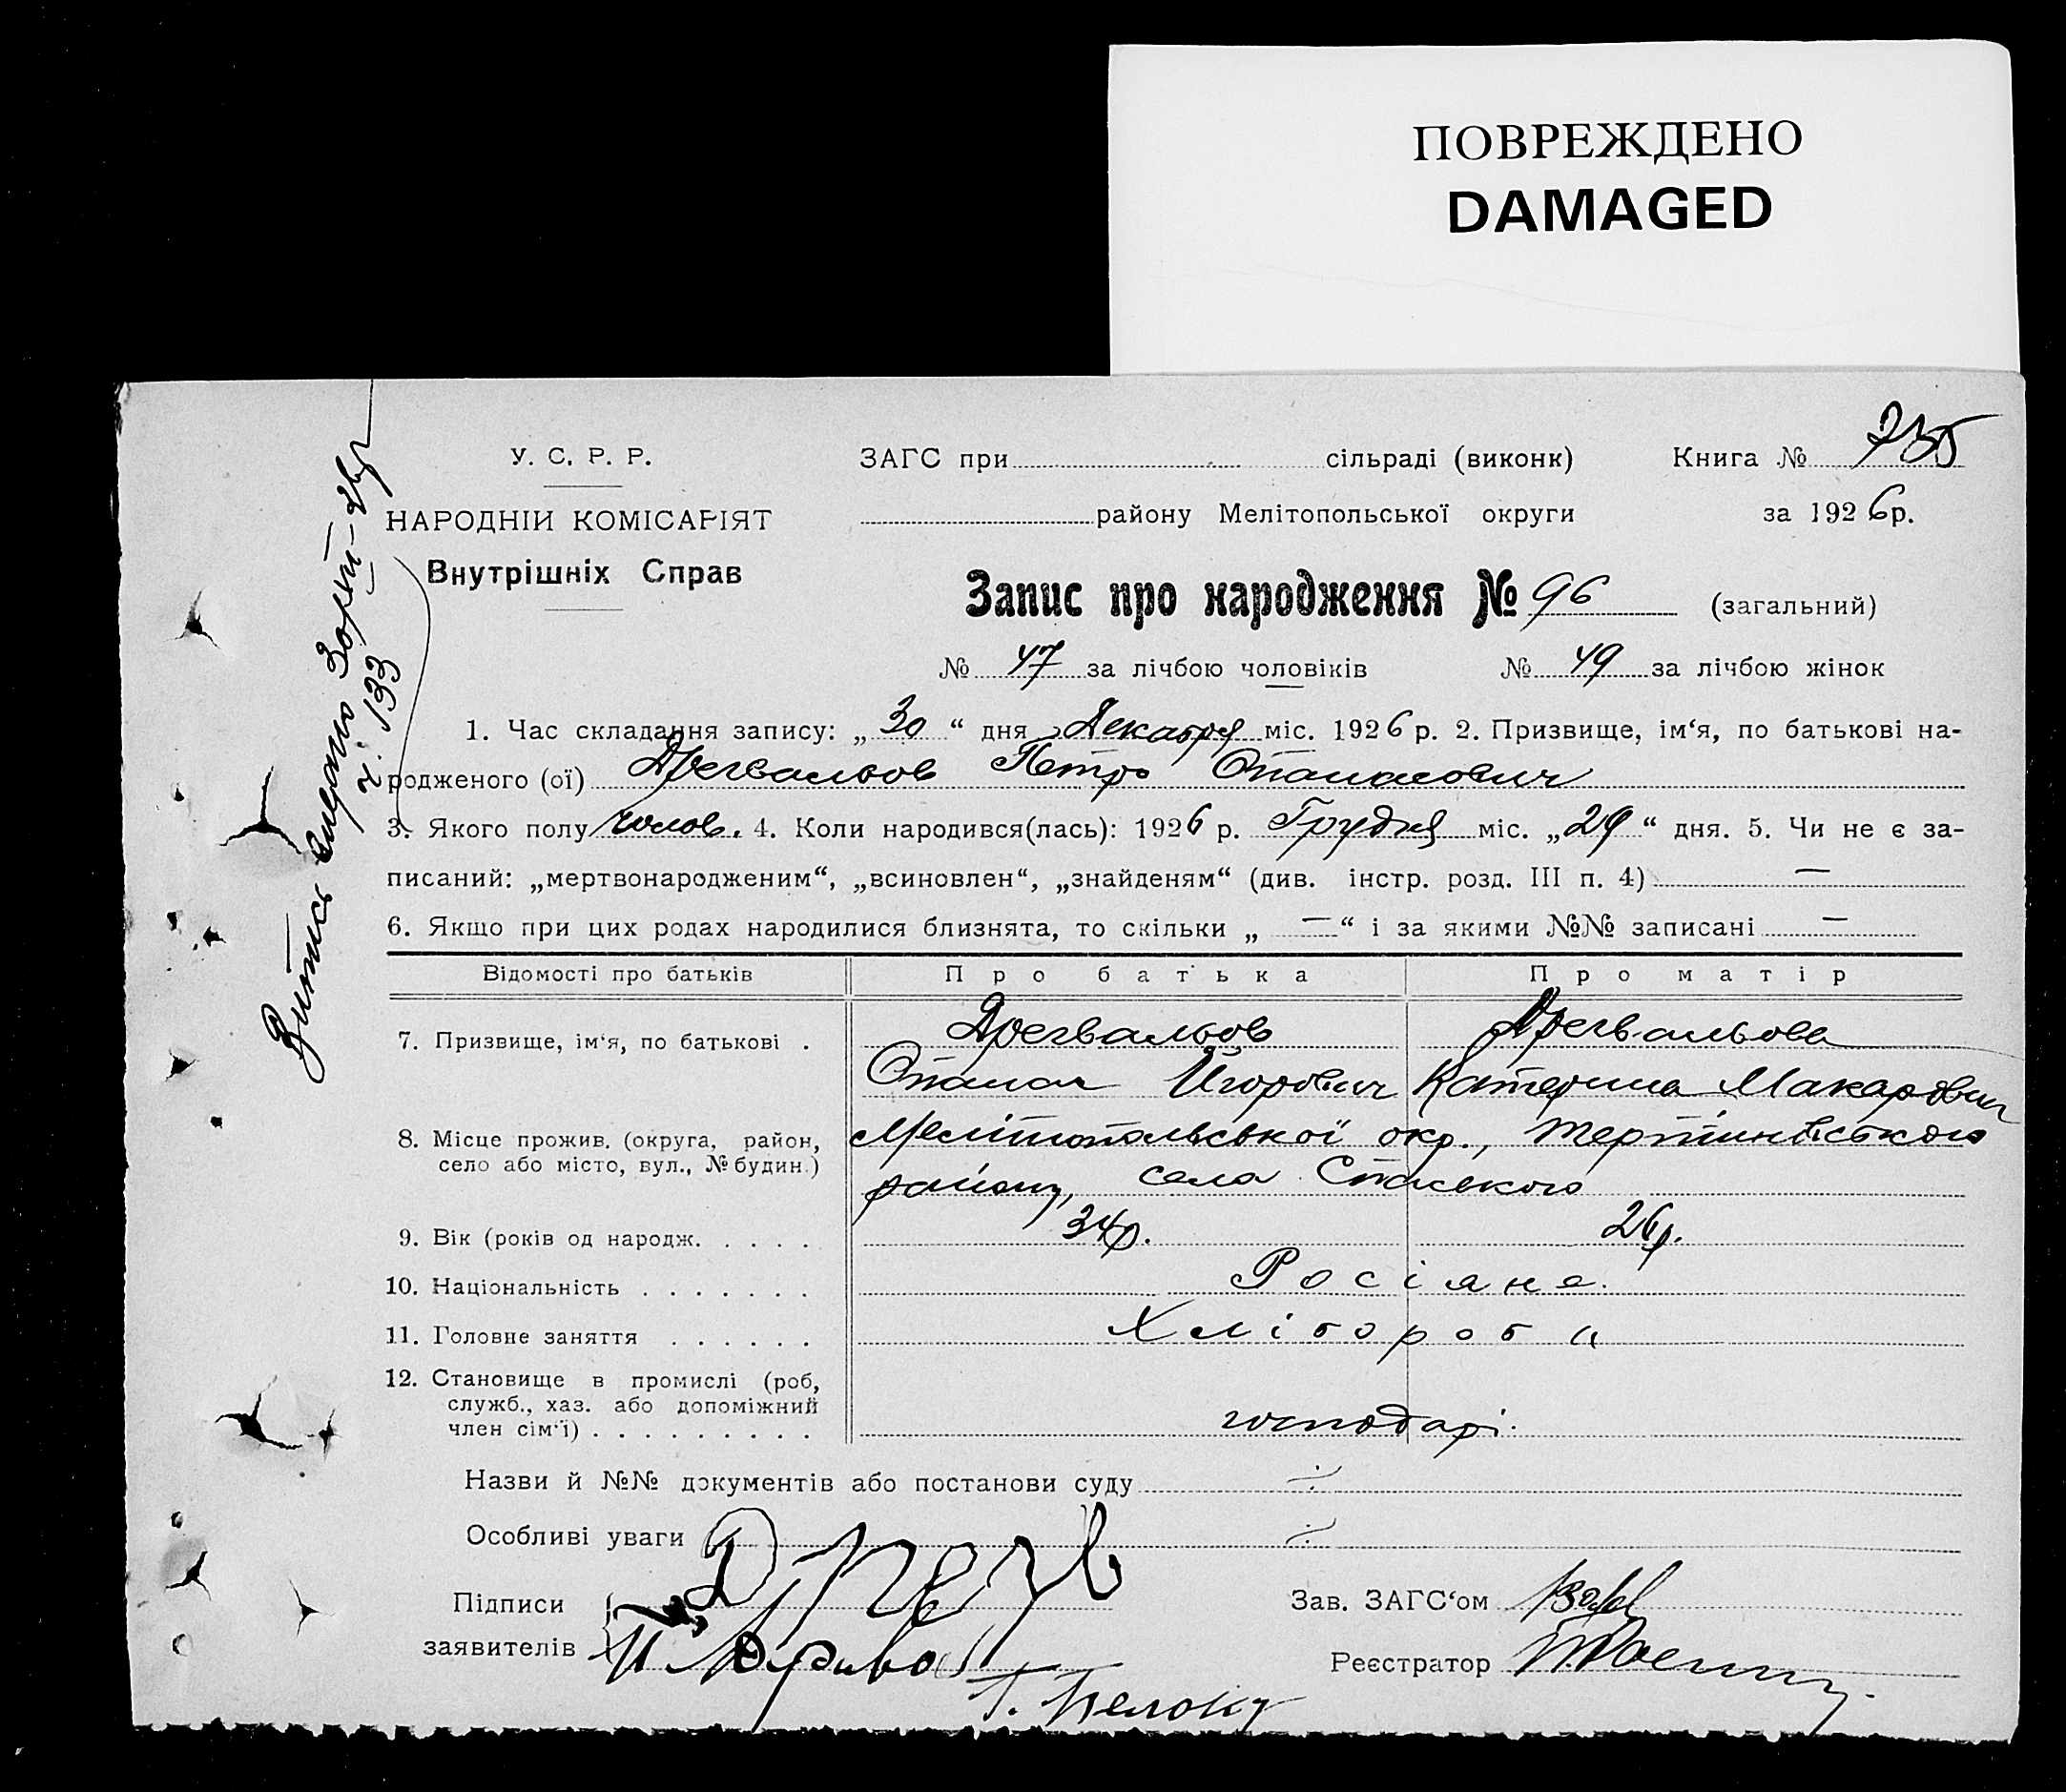 ПОВРЕЖДЕНО
DAMAGED
У. С. Р. Р.
НАРОДНІИ КОМІСАРІЯТ
Внутрішніх Справ
ЗАГС при сільраді (виконк)
Книга № 735
району Мелітопольської округи
за 1926 р.
Запис про народження № 96 (загальний)
№ 47 за лічбою чоловіків № 49 за лічбою жінок
1. Час складання запису: „30“ дня Декабря міс. 1926 р. 2. Призвище, ім‘я, по батькові на-
родженого (ої) Дрегвальов Петро Опанасович
3. Якого полу чолов. 4. Коли народився(лась): 1926 р. Грудня міс. „29“ дня. 5. Чи не є за-
писаний: „мертвонародженим“, „всиновлен“, „знайденям“ (див. інстр. розд. III п. 4) —
6. Якщо при цих родах народилися близнята, то скільки „—“ і за якими №№ записані —
Відомості про батьків Про батька Про матір
7. Призвище, ім‘я, по батькові . Дрегвальов Дрегвальова
Опанас Игорович Катерина Макарович
8. Місце прожив. (округа, район, село або місто, вул., № будин.) Мелітопольської окр.,
району, села Спаського
9. Вік (років од народж. . . . . 34 р. 26 р.
10. Національність . . . . . . . Росіяне.
11. Головне заняття . . . . . . Хлібороби
12. Становище в промислі (роб,
служб., хаз. або допоміжний
член сім‘ї) . . . . . . . . . господарі.
Назви й №№ документів або постанови суду
Особливі уваги
Підписи
заявителів
Дрегв
Зав. ЗАГС‘ом
Реєстратор
Випись
ч. 133